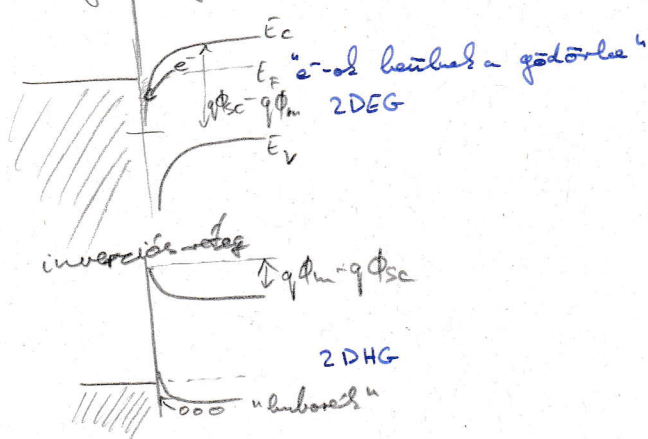 E_C
e⁻ E_F "e⁻-ok beülnek a gödörbe"
qΦ_SC - qΦ_m 2DEG
E_V
inverziós réteg
qΦ_m - qΦ_SC
2DHG
"buborék"